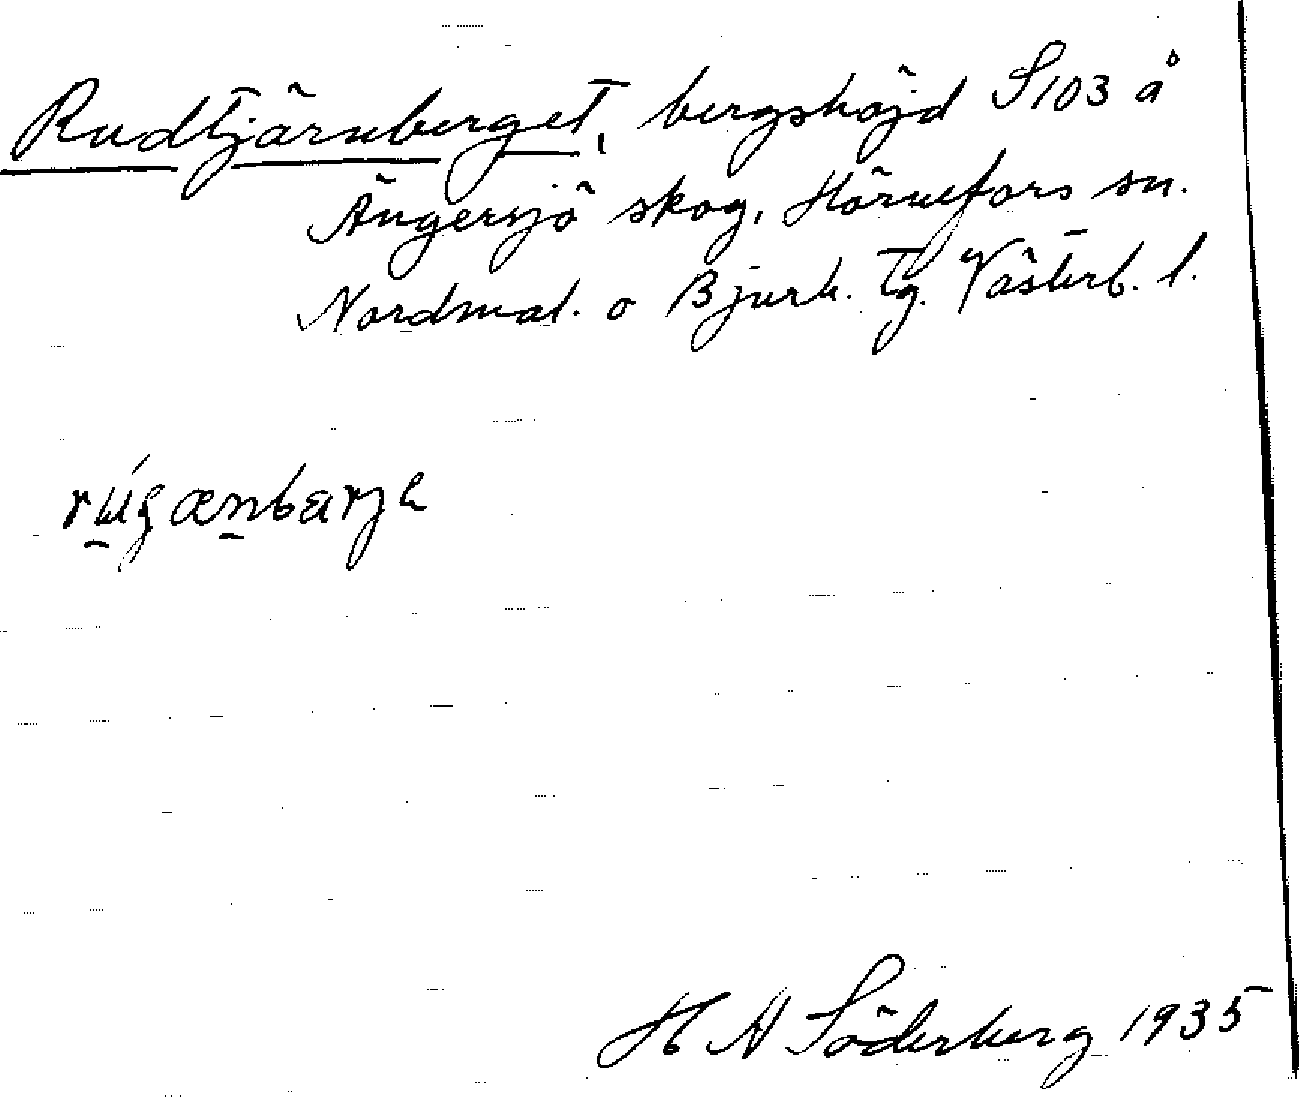 Rudtjärnberget, bergshöjd S103 å
Ängersjö skog, Hörnefors sn.
Nordmal. o Bjurh. tg. Västerb. l.
H A Söderberg 1935